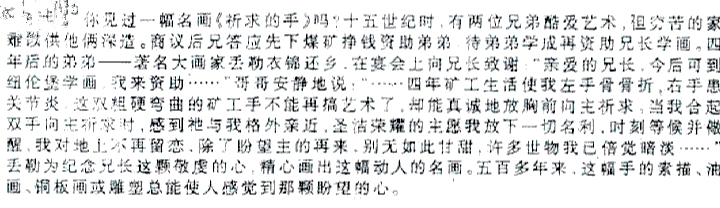 你见过一幅名画《祈求的手》吗?十五世纪时，有两位兄弟酷爱艺术，但穷苦的家
难以供他俩深造。商议后兄答应先下煤矿挣钱资助弟弟，待弟弟学成再资助兄长学画。四
年后的弟弟——著名大画家丢勒衣锦还乡，在宴会上向兄长致谢：“亲爱的兄长，今后可到
纽伦堡学画，我来资助……”哥哥安静地说：“……四年矿工生活使我左手骨骨折，右手患
关节炎，这双粗硬弯曲的矿工手不能再搞艺术了，却能真诚地放胸前向主祈求，当我合起
双手向主祈求时，感到祂与我格外亲近，圣洁荣耀的主愿我放下一切名利，时刻等候并儆
醒，我对地上不再留恋，除了盼望主的再来，别无如此甘甜，许多世物我已倍觉暗淡……”
丢勒为纪念兄长这颗敬虔的心，精心画出这幅动人的名画。五百多年来，这幅手的素描、油
画、铜板画或雕塑总能使人感觉到那颗盼望的心。